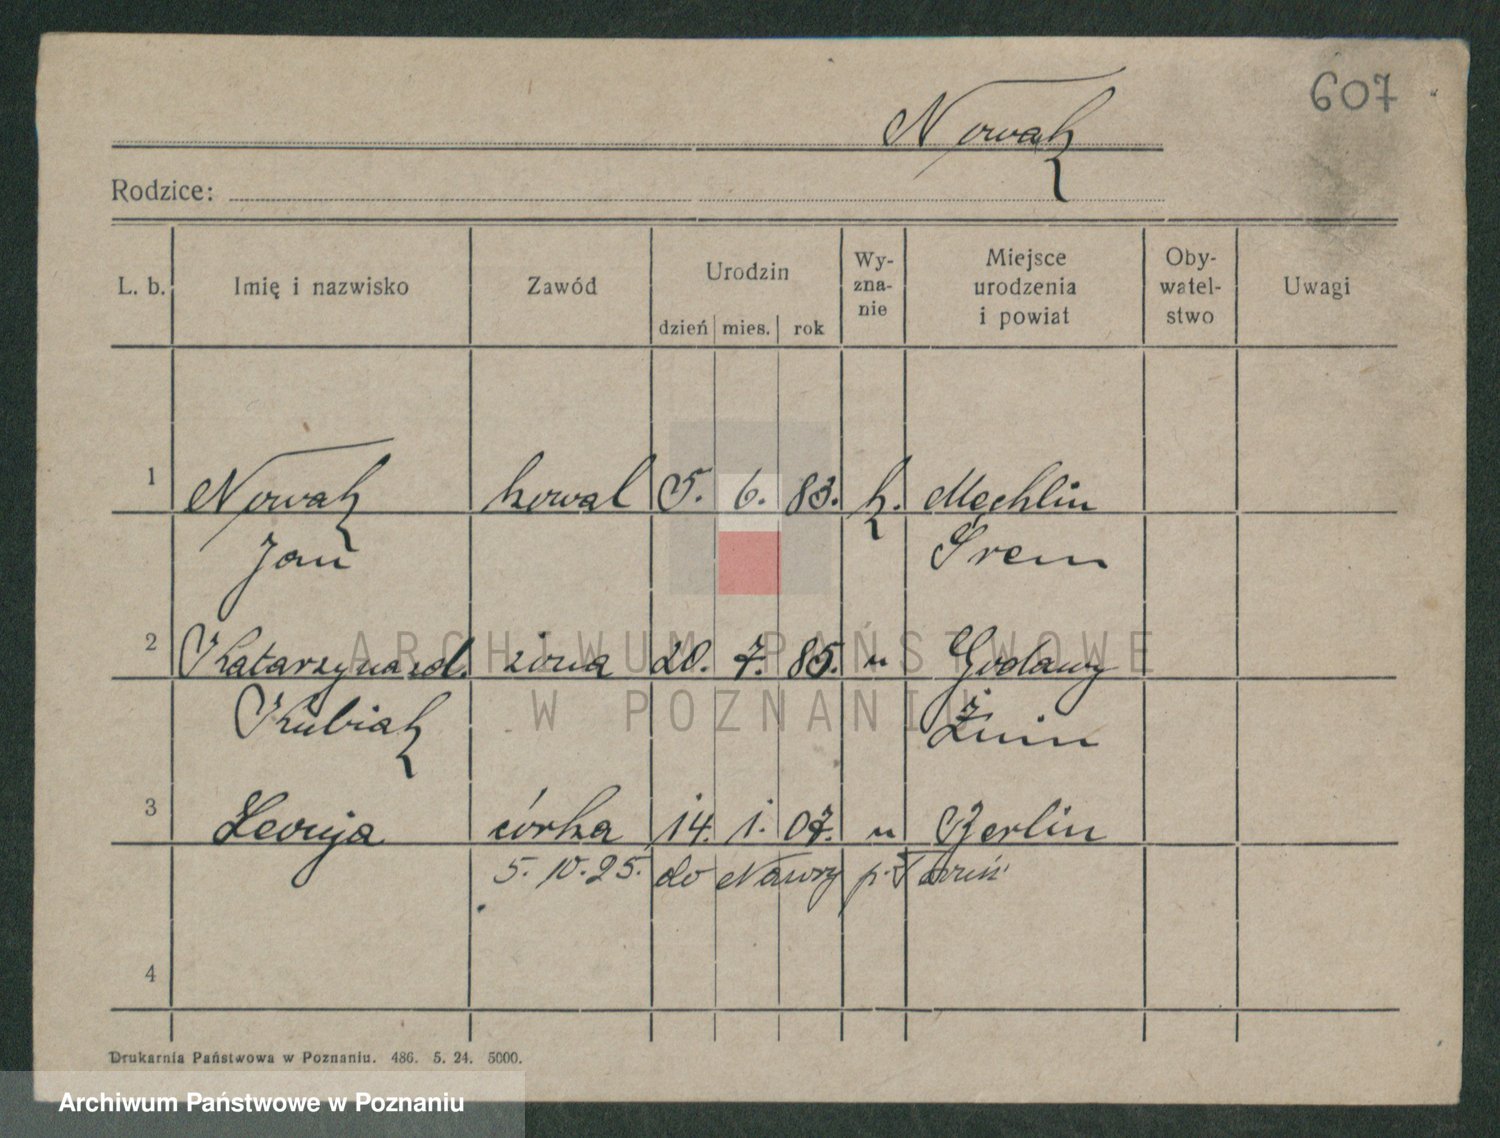 607
Nowak
Rodzice:
L. b. Imię i nazwisko Zawód Urodzin dzień mies. rok Wy-zna-nie Miejsce urodzenia i powiat Oby-watel-stwo Uwagi
1 Nowak kowal 5. 6. 83. k. Mechlin
Jan Śrem
2 Katarzyna zd. żona 20. 7. 85. " Godawy
Kubiak Żnin
3 córka 14. 1. 07. " Berlin
5. 10. 25. do Nawry p. Toruń
4
Drukarnia Państwowa w Poznaniu. 486. 5. 24. 5000.
ARCHIWUM PAŃSTWOWE
W POZNANIU
Archiwum Państwowe w Poznaniu